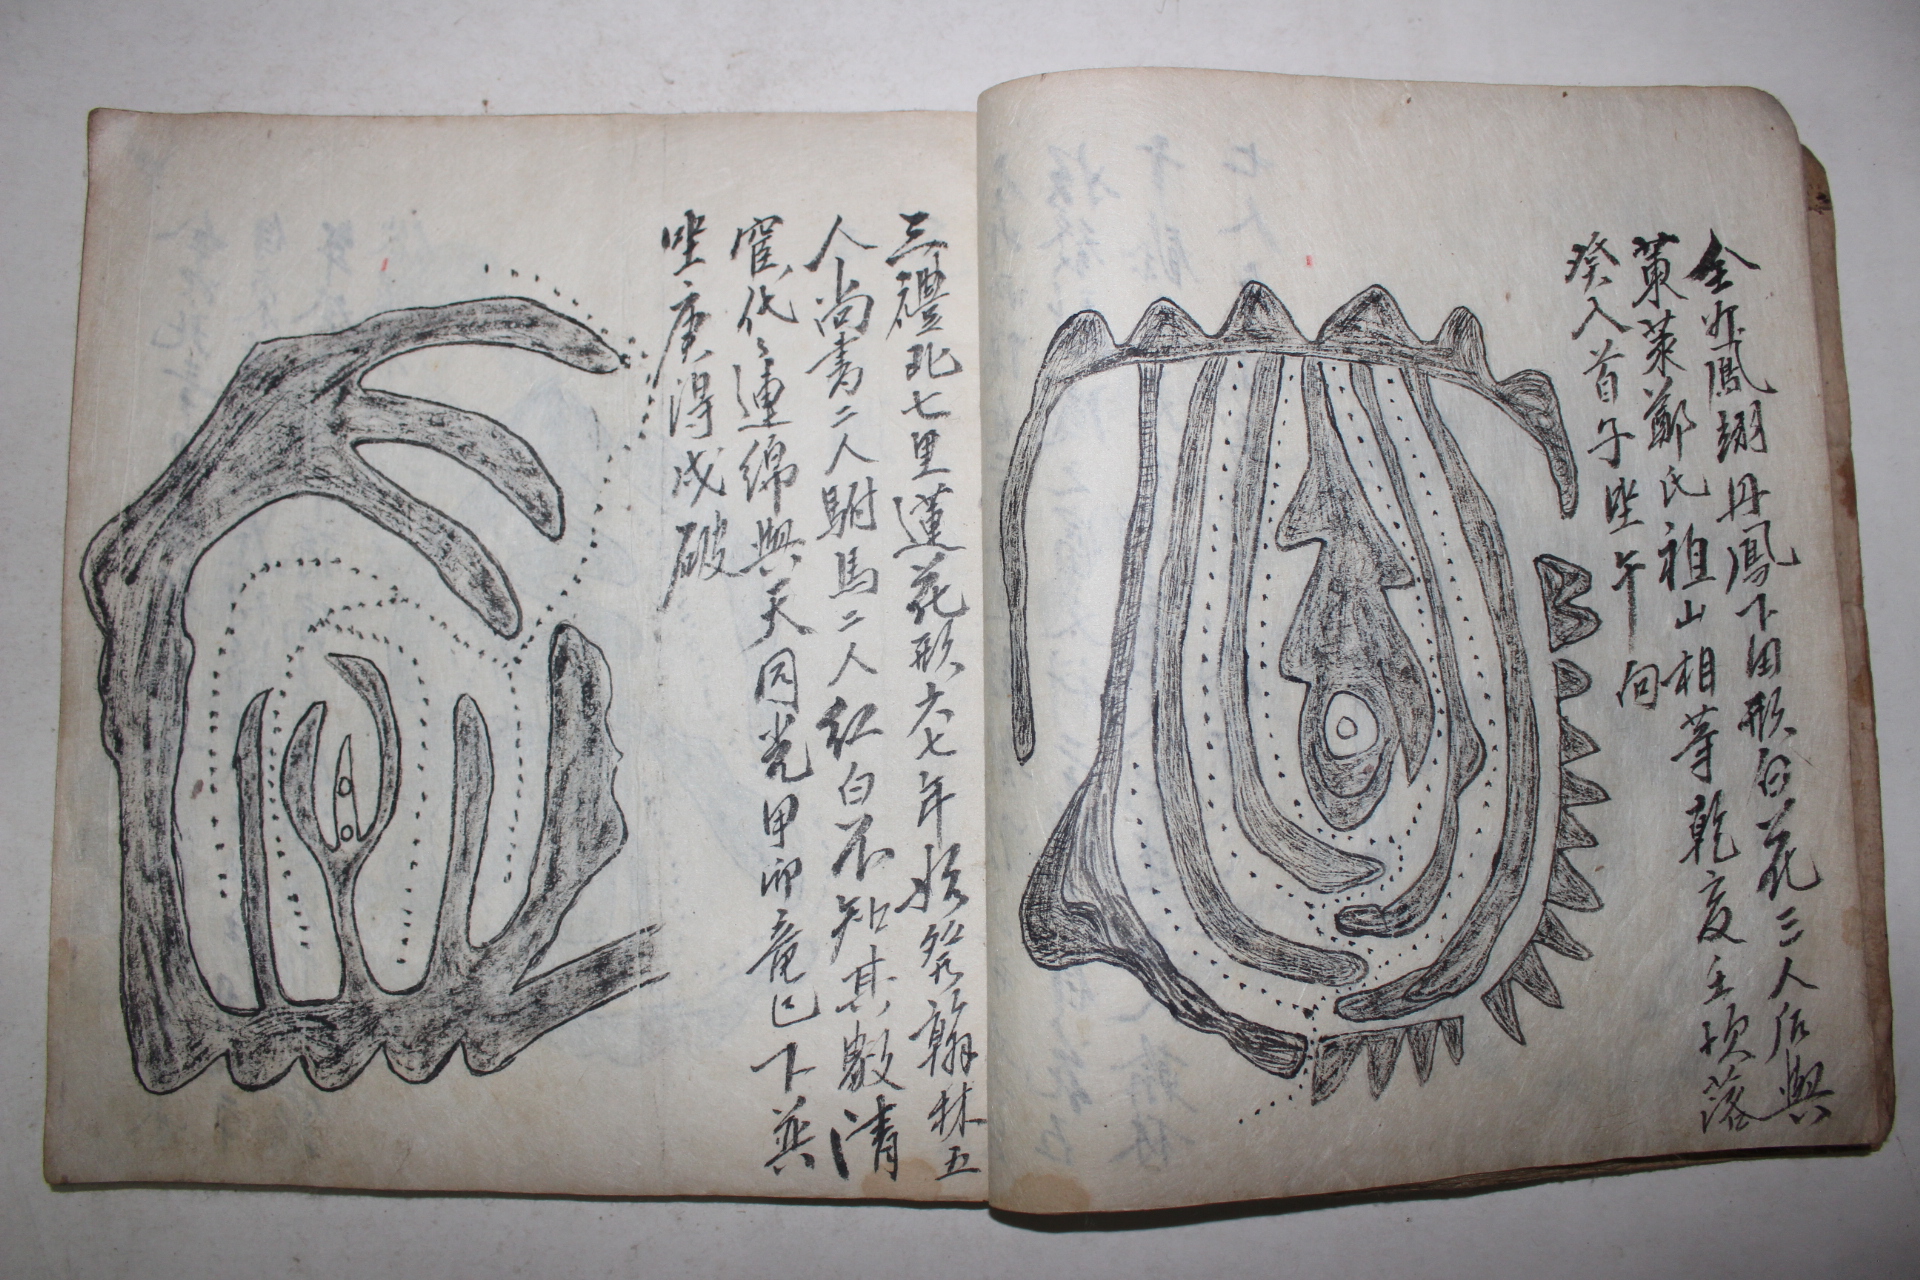 全州鳳翔丹鳳下田形白花三人后與
東萊鄭氏祖山相等乾亥主項落
癸入首子坐午向
三禮北七里蓮花形六七年始發翰林五
人尚書二人駙馬二人紅白不知其數清
宦代〻連綿與天同光甲卯竜巳下巽
坐庚得戌破